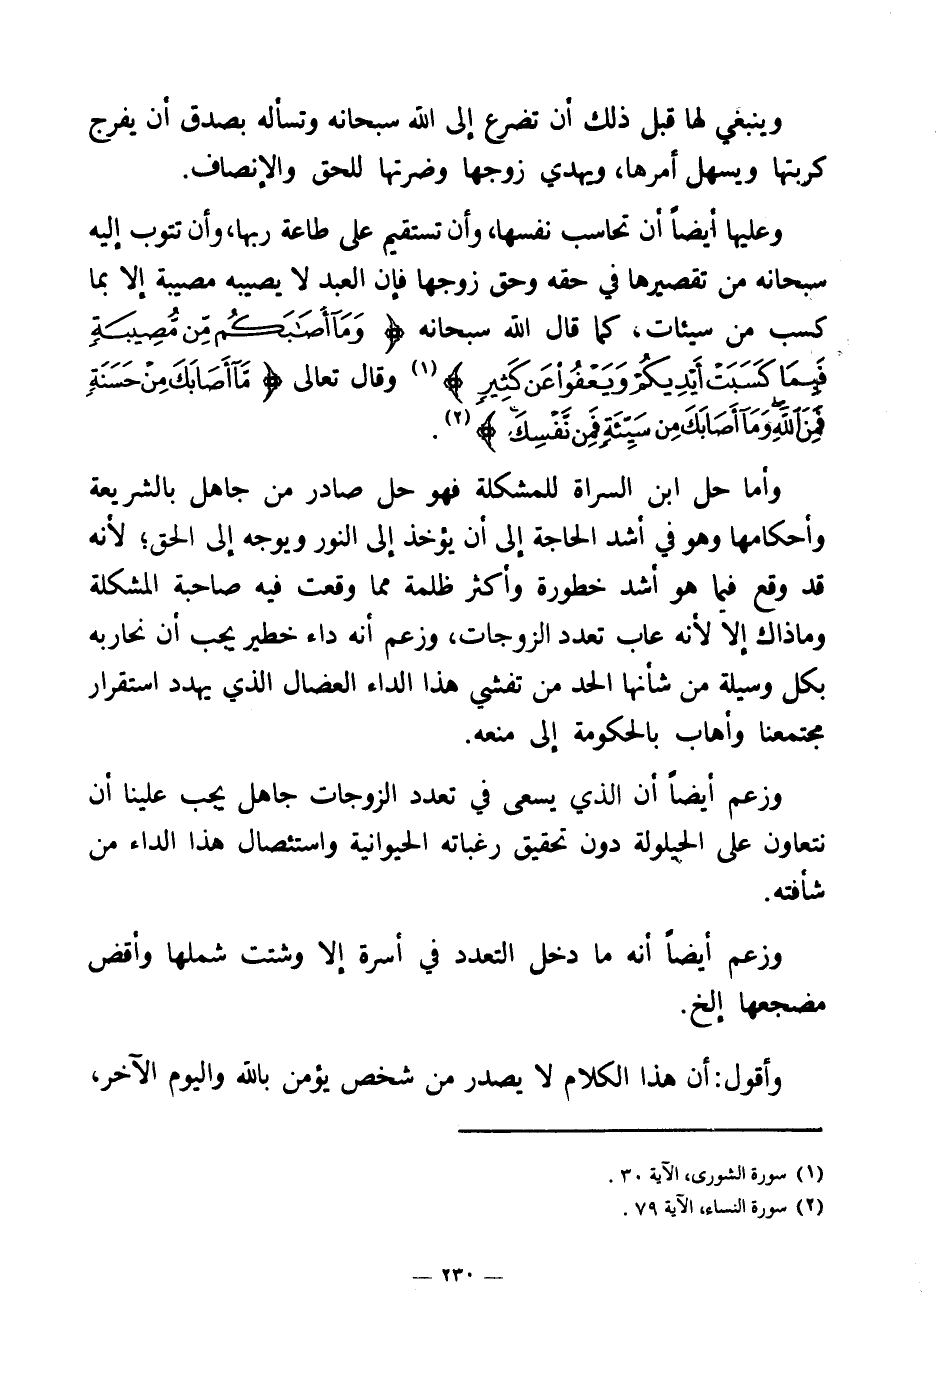 وينبغي لها قبل ذلك أن تضرع إلى الله سبحانه وتسأله بصدق أن يفرج
كربتها ويسهل أمرها، ويهدي زوجها وضرتها للحق والإنصاف.
وعليها أيضاً أن تحاسب نفسها، وأن تستقيم على طاعة ربها، وأن تتوب إليه
سبحانه من تقصيرها في حقه وحق زوجها فإن العبد لا يصيبه مصيبة إلا بما
كسب من سيئات، كما قال الله سبحانه ﴿ وَمَآ أَصَٰبَكُم مِّن مُّصِيبَةٍ
فَبِمَا كَسَبَتْ أَيْدِيكُمْ وَيَعْفُوا۟ عَن كَثِيرٍ ﴾ (١) وقال تعالى ﴿ مَّآ أَصَابَكَ مِنْ حَسَنَةٍ
فَمِنَ ٱللَّهِ ۖ وَمَآ أَصَابَكَ مِن سَيِّئَةٍ فَمِن نَّفْسِكَ ۚ ﴾ (٢) .
وأما حل ابن السراة للمشكلة فهو حل صادر من جاهل بالشريعة
وأحكامها وهو في أشد الحاجة إلى أن يؤخذ إلى النور ويوجه إلى الحق؛ لأنه
قد وقع فيما هو أشد خطورة وأكثر ظلمة مما وقعت فيه صاحبة المشكلة
وماذاك إلا لأنه عاب تعدد الزوجات، وزعم أنه داء خطير يجب أن نحاربه
بكل وسيلة من شأنها الحد من تفشي هذا الداء العضال الذي يهدد استقرار
مجتمعنا وأهاب بالحكومة إلى منعه.
وزعم أيضاً أن الذي يسعى في تعدد الزوجات جاهل يجب علينا أن
نتعاون على الحيلولة دون تحقيق رغباته الحيوانية واستئصال هذا الداء من
شأفته.
وزعم أيضاً أنه ما دخل التعدد في أسرة إلا وشتت شملها وأقض
مضجعها إلخ.
وأقول: أن هذا الكلام لا يصدر من شخص يؤمن بالله واليوم الآخر،
(١) سورة الشورى، الآية ٣٠ .
(٢) سورة النساء، الآية ٧٩ .
— ٢٣٠ —